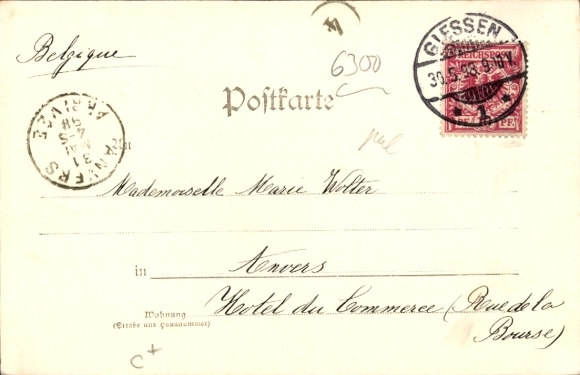 Belgique
4
6300
GIESSEN
30.5.98.9-10V.
* 1. *
REICHSPOST
Postkarte
ANVERS
31
MAI
98
ARRIVÉE
An
Mademoiselle Marie Wolter
in Anvers
Wohnung
(Straße und Hausnummer)
Hotel du Commerce (Rue de la
Bourse)
C+